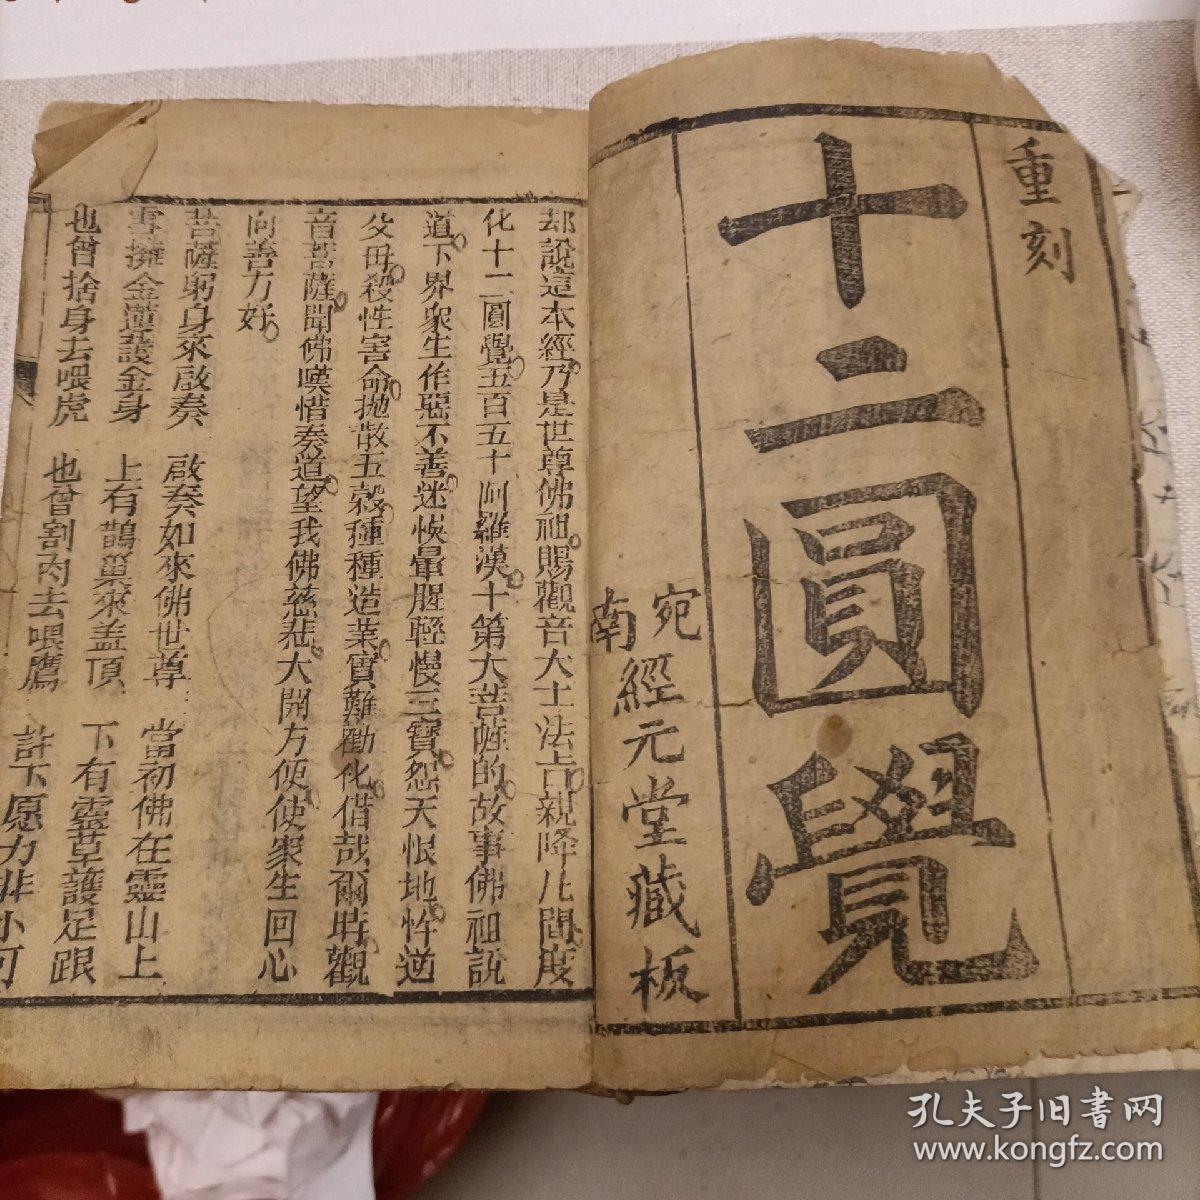 重刻
十二圓覺
宛南
經元堂藏板
却說這本經乃是世尊佛祖賜觀音大士法旨親降凡間度
化十二圓覺五百五十阿羅漢十第大菩薩的故事佛祖說
道下界衆生作惡不善迷失暈腥輕慢三寶怨天恨地忤逆
父母殺性害命抛散五穀種種造業實難勸化借哉爾時觀
音菩薩聞佛嘆惜奏道望我佛慈悲大開方便使衆生回心
向善方好
菩薩躬身來啟奏 啟奏如來佛世尊 當初佛在靈山上
雪擁金蓮護金身 上有鵲巢來盖頂 下有靈草護足跟
也曾捨身去喂虎 也曾割肉去喂鷹 許下愿力非小可
孔夫子旧书网
www.kongfz.com